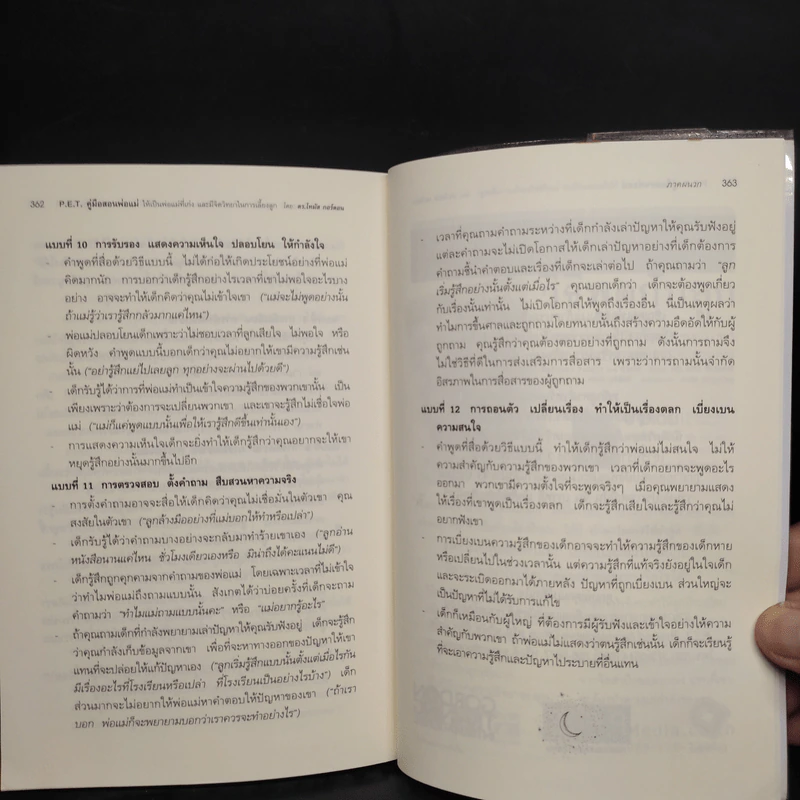 362 P.E.T. คู่มือสอนพ่อแม่ ให้เป็นพ่อแม่ที่เก่ง และมีจิตวิทยาในการเลี้ยงลูก โดย ดร.โทมัส กอร์ดอน
แบบที่ 10 การรับรอง แสดงความเห็นใจ ปลอบโยน ให้กำลังใจ
- คำพูดที่สื่อด้วยวิธีแบบนี้ ไม่ได้ก่อให้เกิดประโยชน์อย่างที่พ่อแม่
คิดมากนัก การบอกว่าเด็กรู้สึกอย่างไรเวลาที่เขาไม่พอใจอะไรบาง
อย่าง อาจจะทำให้เด็กคิดว่าคุณไม่เข้าใจเขา (“แม่จะไม่พูดอย่างนั้น
ถ้าแม่รู้ว่าเรารู้สึกกลัวมากแค่ไหน”)
- พ่อแม่ปลอบโยนเด็กเพราะว่าไม่ชอบเวลาที่ลูกเสียใจ ไม่พอใจ หรือ
ผิดหวัง คำพูดแบบนี้บอกเด็กว่าคุณไม่อยากให้เขามีความรู้สึกเช่น
นั้น (“อย่ารู้สึกแย่ไปเลยลูก ทุกอย่างจะผ่านไปด้วยดี”)
- เด็กรับรู้ได้ว่าการที่พ่อแม่ทำเป็นเข้าใจความรู้สึกของพวกเขานั้น เป็น
เพียงเพราะว่าต้องการจะเปลี่ยนพวกเขา และเขาจะรู้สึกไม่เชื่อใจพ่อ
แม่ (“แม่ก็แค่พูดแบบนั้นเพื่อให้เรารู้สึกดีขึ้นเท่านั้นเอง”)
- การแสดงความเห็นใจเด็กจะยิ่งทำให้เด็กรู้สึกว่าคุณอยากจะให้เขา
หยุดรู้สึกอย่างนั้นมากขึ้นไปอีก
แบบที่ 11 การตรวจสอบ ตั้งคำถาม สืบสวนหาความจริง
- การตั้งคำถามอาจจะสื่อให้เด็กคิดว่าคุณไม่เชื่อมั่นในตัวเขา คุณ
สงสัยในตัวเขา (“ลูกล้างมืออย่างที่แม่บอกให้ทำหรือเปล่า”)
- เด็กรับรู้ได้ว่าคำถามบางอย่างจะกลับมาทำร้ายเขาเอง (“ลูกอ่าน
หนังสือนานแค่ไหน ชั่วโมงเดียวเองหรือ มิน่าถึงได้คะแนนไม่ดี”)
- เด็กรู้สึกถูกคุกคามจากคำถามของพ่อแม่ โดยเฉพาะเวลาที่ไม่เข้าใจ
ว่าทำไมพ่อแม่ถึงถามแบบนั้น สังเกตได้ว่าบ่อยครั้งที่เด็กจะถาม
คำถามว่า “ทำไมแม่ถามแบบนั้นคะ” หรือ “แม่อยากรู้อะไร”
- ถ้าคุณถามเด็กที่กำลังพยายามเล่าปัญหาให้คุณรับฟังอยู่ เด็กจะรู้สึก
ว่าคุณกำลังเก็บข้อมูลจากเขา เพื่อที่จะหาทางออกของปัญหาให้เขา
แทนที่จะปล่อยให้แก้ปัญหาเอง (“ลูกเริ่มรู้สึกแบบนั้นตั้งแต่เมื่อไรกัน
มีเรื่องอะไรที่โรงเรียนหรือเปล่า ที่โรงเรียนเป็นอย่างไรบ้าง”) เด็ก
ส่วนมากจะไม่อยากให้พ่อแม่หาคำตอบให้ปัญหาของเขา (“ถ้าเรา
บอก พ่อแม่ก็จะพยายามบอกว่าเราควรจะทำอย่างไร”)
ภาคผนวก 363
- เวลาที่คุณถามคำถามระหว่างที่เด็กกำลังเล่าปัญหาให้คุณรับฟังอยู่
แต่ละคำถามจะไม่เปิดโอกาสให้เด็กเล่าปัญหาอย่างที่เด็กต้องการ
คำถามชี้นำคำตอบและเรื่องที่เด็กจะเล่าต่อไป ถ้าคุณถามว่า “ลูก
เริ่มรู้สึกอย่างนั้นตั้งแต่เมื่อไร” คุณบอกเด็กว่า เด็กจะต้องพูดเกี่ยว
กับเรื่องนั้นเท่านั้น ไม่เปิดโอกาสให้พูดถึงเรื่องอื่น นี่เป็นเหตุผลว่า
ทำไมการขึ้นศาลและถูกถามโดยทนายนั้นถึงสร้างความอึดอัดให้กับผู้
ถูกถาม คุณรู้สึกว่าคุณต้องตอบอย่างที่ถูกถาม ดังนั้นการถามจึง
ไม่ใช่วิธีที่ดีในการส่งเสริมการสื่อสาร เพราะว่าการถามนั้นจำกัด
อิสรภาพในการสื่อสารของผู้ถูกถาม
แบบที่ 12 การถอนตัว เปลี่ยนเรื่อง ทำให้เป็นเรื่องตลก เบี่ยงเบน
ความสนใจ
- คำพูดที่สื่อด้วยวิธีแบบนี้ ทำให้เด็กรู้สึกว่าพ่อแม่ไม่สนใจ ไม่ให้
ความสำคัญกับความรู้สึกของพวกเขา เวลาที่เด็กอยากจะพูดอะไร
ออกมา พวกเขามีความตั้งใจที่จะพูดจริงๆ เมื่อคุณพยายามแสดง
ให้เรื่องที่เขาพูดเป็นเรื่องตลก เด็กจะรู้สึกเสียใจและรู้สึกว่าคุณไม่
อยากฟังเขา
- การเบี่ยงเบนความรู้สึกของเด็กอาจจะทำให้ความรู้สึกของเด็กหาย
หรือเปลี่ยนไปในช่วงเวลานั้น แต่ความรู้สึกที่แท้จริงยังอยู่ในใจเด็ก
และจะระเบิดออกมาได้ภายหลัง ปัญหาที่ถูกเบี่ยงเบน ส่วนใหญ่จะ
เป็นปัญหาที่ไม่ได้รับการแก้ไข
- เด็กก็เหมือนกับผู้ใหญ่ ที่ต้องการมีผู้รับฟังและเข้าใจอย่างให้ความ
สำคัญกับพวกเขา ถ้าพ่อแม่ไม่แสดงว่าตนรู้สึกเช่นนั้น เด็กก็จะเรียนรู้
ที่จะเอาความรู้สึกและปัญหาไประบายที่อื่นแทน